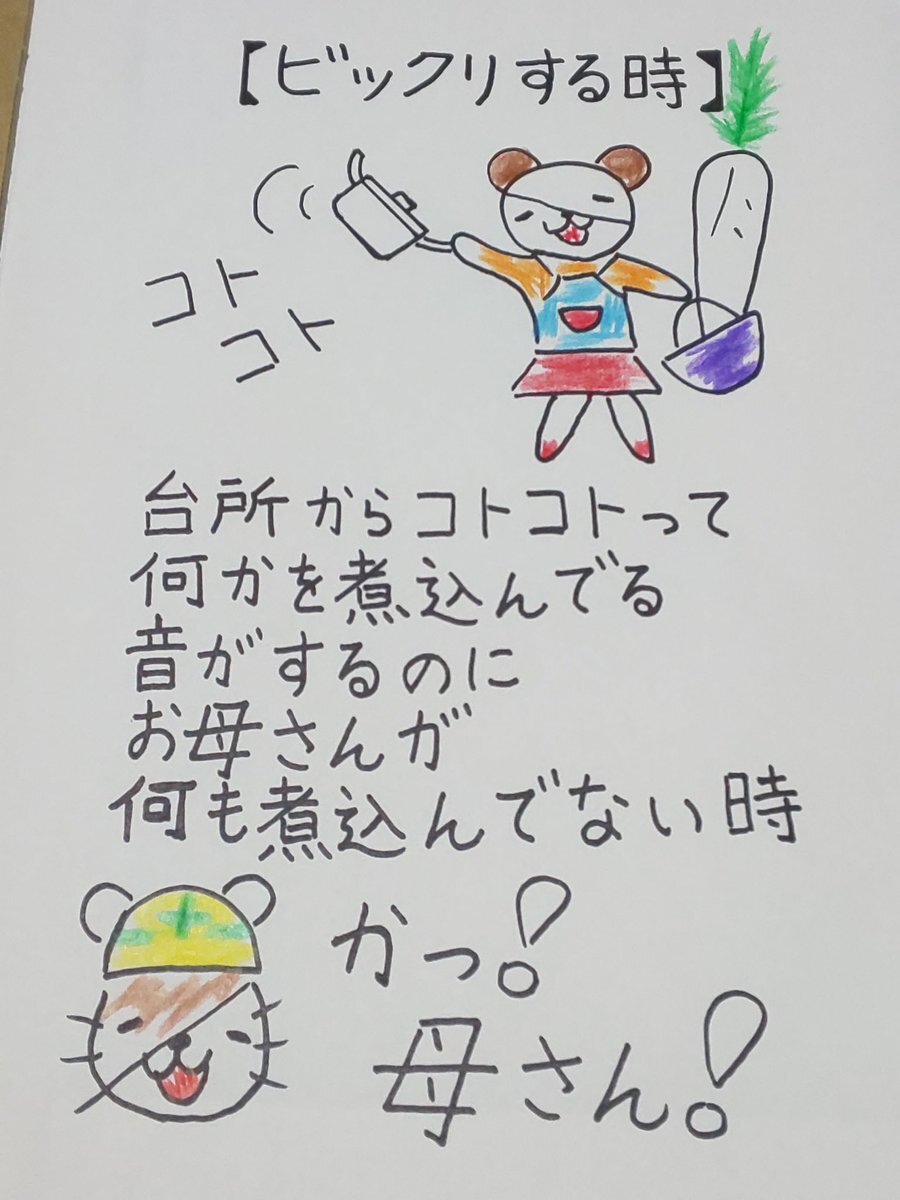 【ビックリする時】
コト
コト
台所からコトコトって
何かを煮込んでる
音がするのに
お母さんが
何も煮込んでない時
かっ!
母さん!